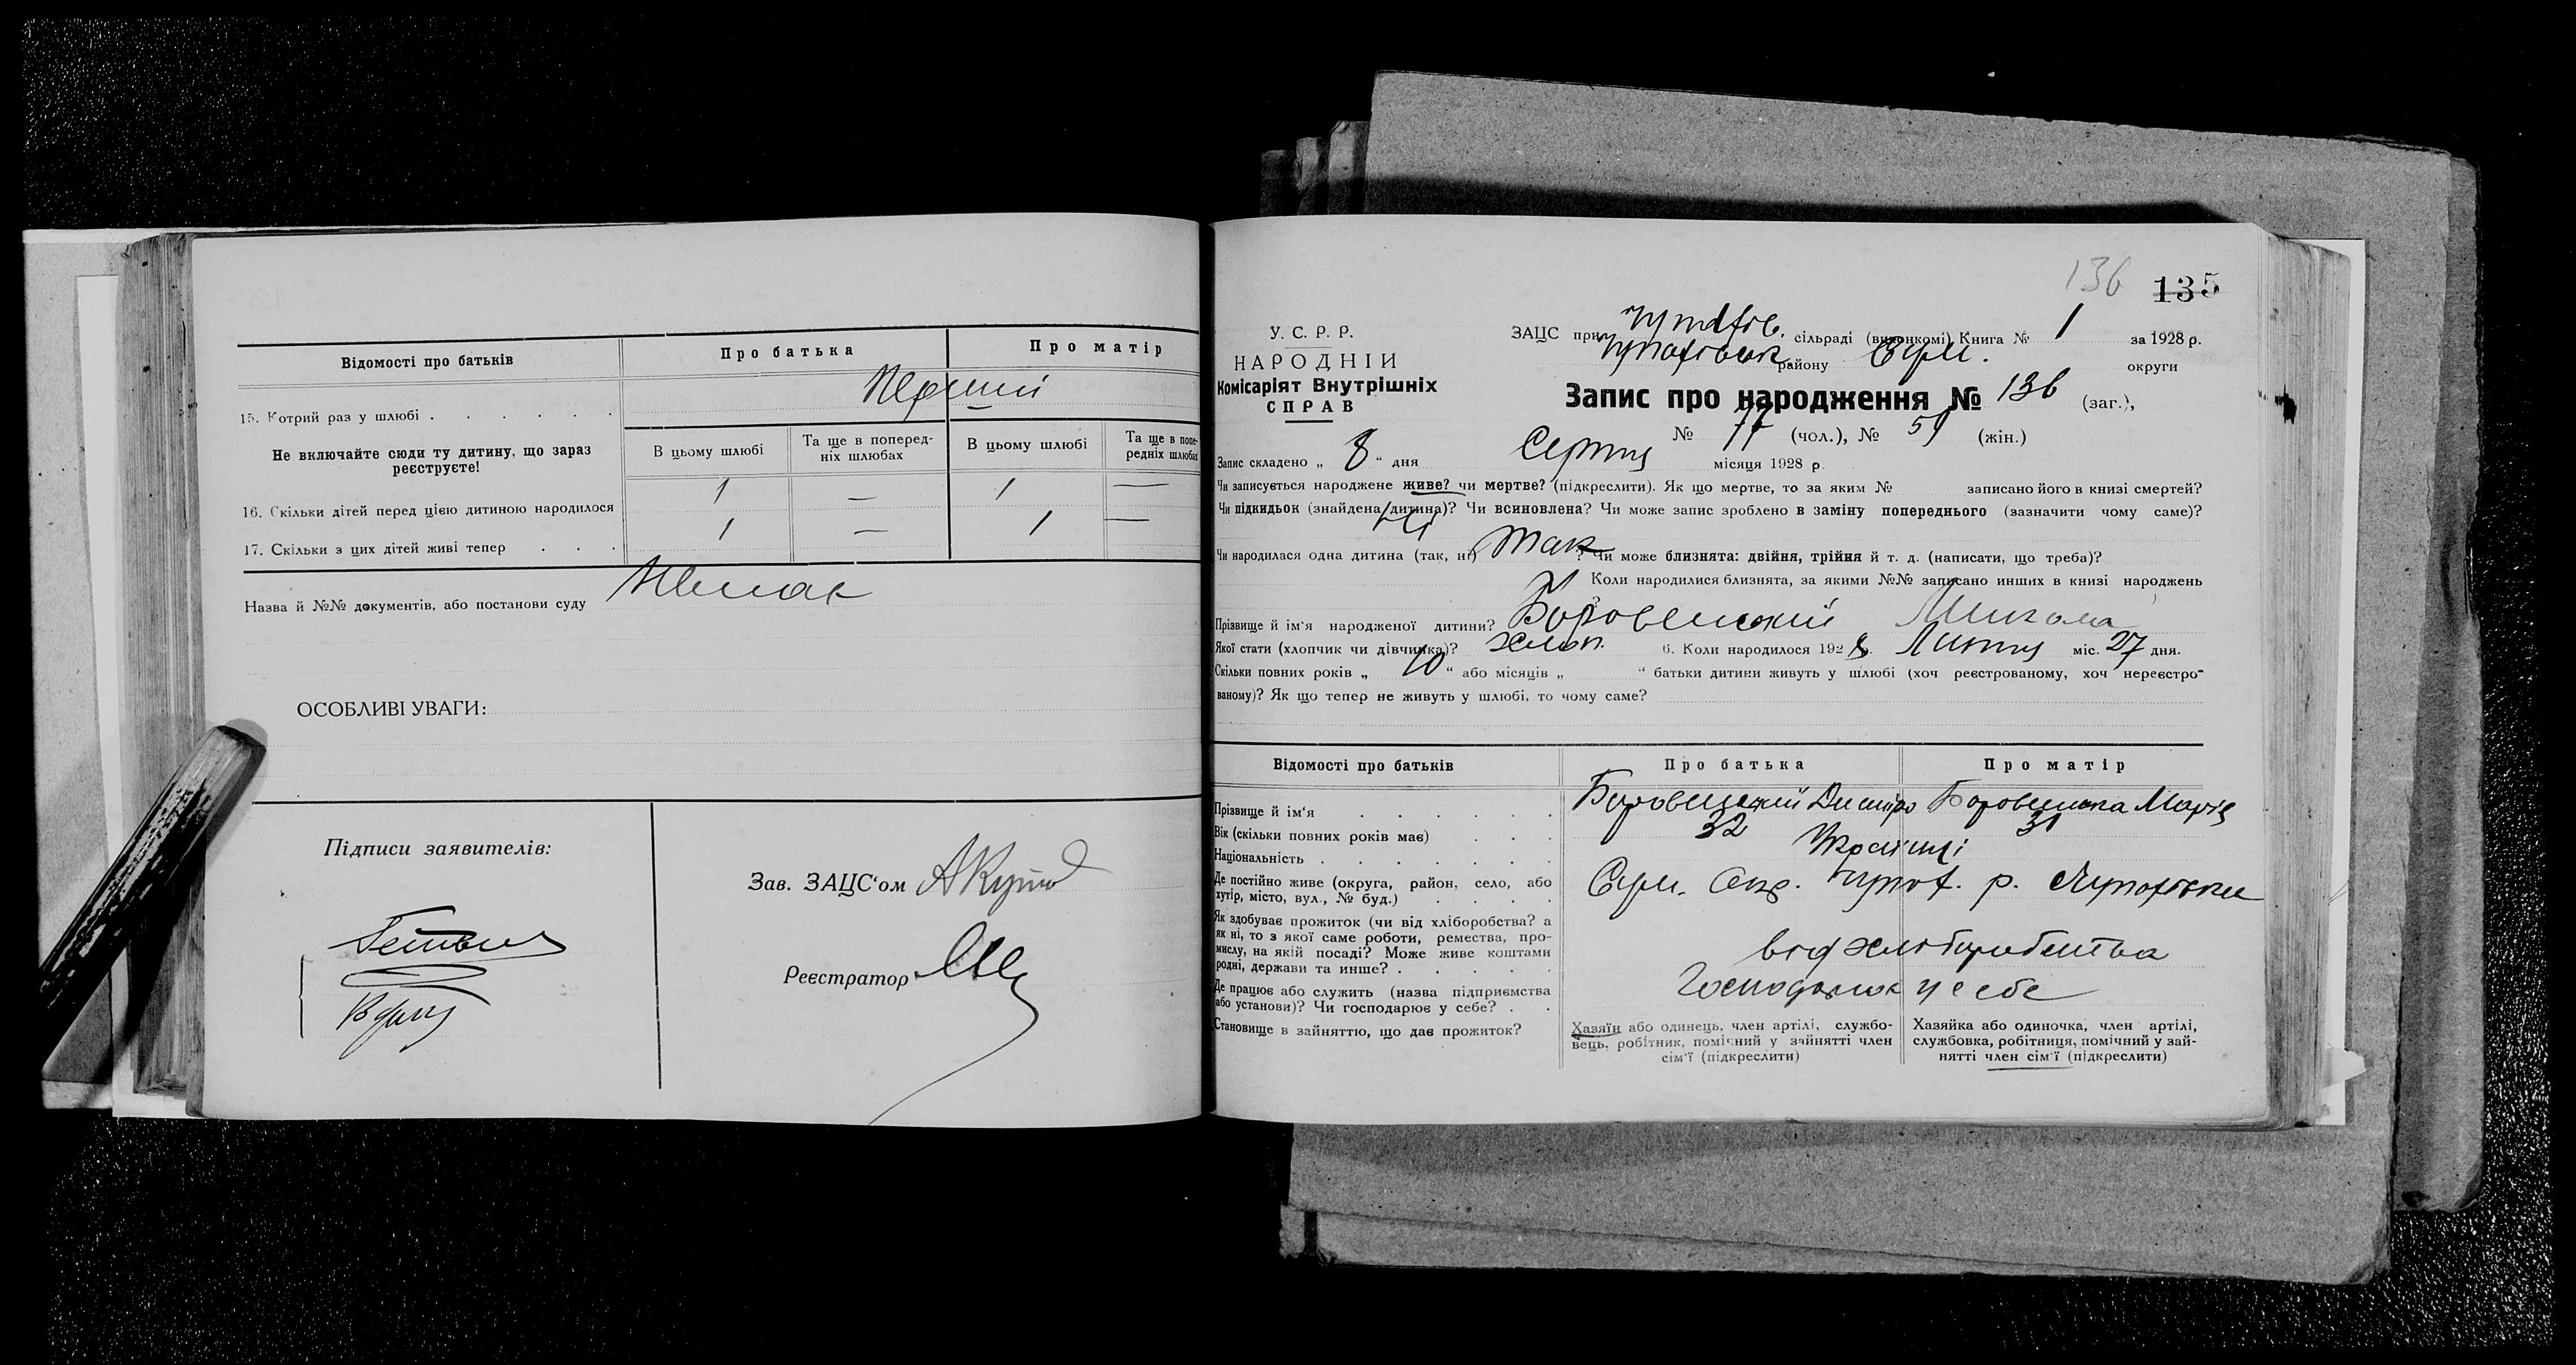 Відомості про батьків
Про батька
Про матір
15. Котрий раз у шлюбі
Перший
Не включайте сюди ту дитину, що зараз реєструєте!
В цьому шлюбі
Та ще в поперед-
ніх шлюбах
В цьому шлюбі
Та ще в попе-
редніх шлюбах
16. Скільки дітей перед цією дитиною народилося
1 — 1 —
17. Скільки з цих дітей живі тепер
1 — 1 —
Назва й №№ документів, або постанови суду
Немає
ОСОБЛИВІ УВАГИ:
Підписи заявителів:
Зав. ЗАЦС'ом
Реєстратор
136 135
У. С. Р. Р.
НАРОДНІЙ
Комісаріят Внутрішніх
СПРАВ
ЗАЦС при сільраді (виконкомі) Книга № 1 за 1928 р.
району округи
Запис про народження № 136 (заг.),
№ 77 (чол.), № 59 (жін.)
Запис складено „ 8 “ дня Серпня місяця 1928 р.
Чи записується народжене живе? чи мертве? (підкреслити). Як що мертве, то за яким № записано його в книзі смертей?
Чи підкидьок (знайдена дитина)? Чи всиновлена? Чи може запис зроблено в заміну попереднього (зазначити чому саме)?
Ні
Чи народилася одна дитина (так, ні) Так ? Чи може близнята: двійня, трійня й т. д. (написати, що треба)?
Коли народилися близнята, за якими №№ записано инших в книзі народжень
Прізвище й ім'я народженої дитини? Боровенський Микола
Якої стати (хлопчик чи дівчинка)? хлоп. 6. Коли народилося 1928 Липня міс. 27 дня.
Скільки повних років „ 10 “ або місяців „ “ батьки дитини живуть у шлюбі (хоч реєстрованому, хоч нереєстро-
ваному)? Як що тепер не живуть у шлюбі, то чому саме?
Відомості про батьків
Про батька
Про матір
Прізвище й ім'я
Боровенський Дмитро Боровенська Марія
Вік (скільки повних років має)
32 31
Національність
Українці
Де постійно живе (округа, район, село, або
хутір, місто, вул., № буд.)
Як здобуває прожиток (чи від хліборобства? а
як ні, то з якої саме роботи, ремества, про-
мислу, на якій посаді? Може живе коштами
родні, держави та инше?
від хліборобства
Де працює або служить (назва підприємства
або установи)? Чи господарює у себе?
Господарює у себе
Становище в зайняттю, що дає прожиток?
Хазяїн або одинець, член артілі, службо-
вець, робітник, помічний у зайнятті член
сім'ї (підкреслити)
Хазяйка або одиночка, член артілі,
службовка, робітниця, помічний у зай-
нятті член сім'ї (підкреслити)